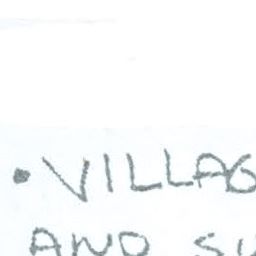 • VILLAG
AND SU